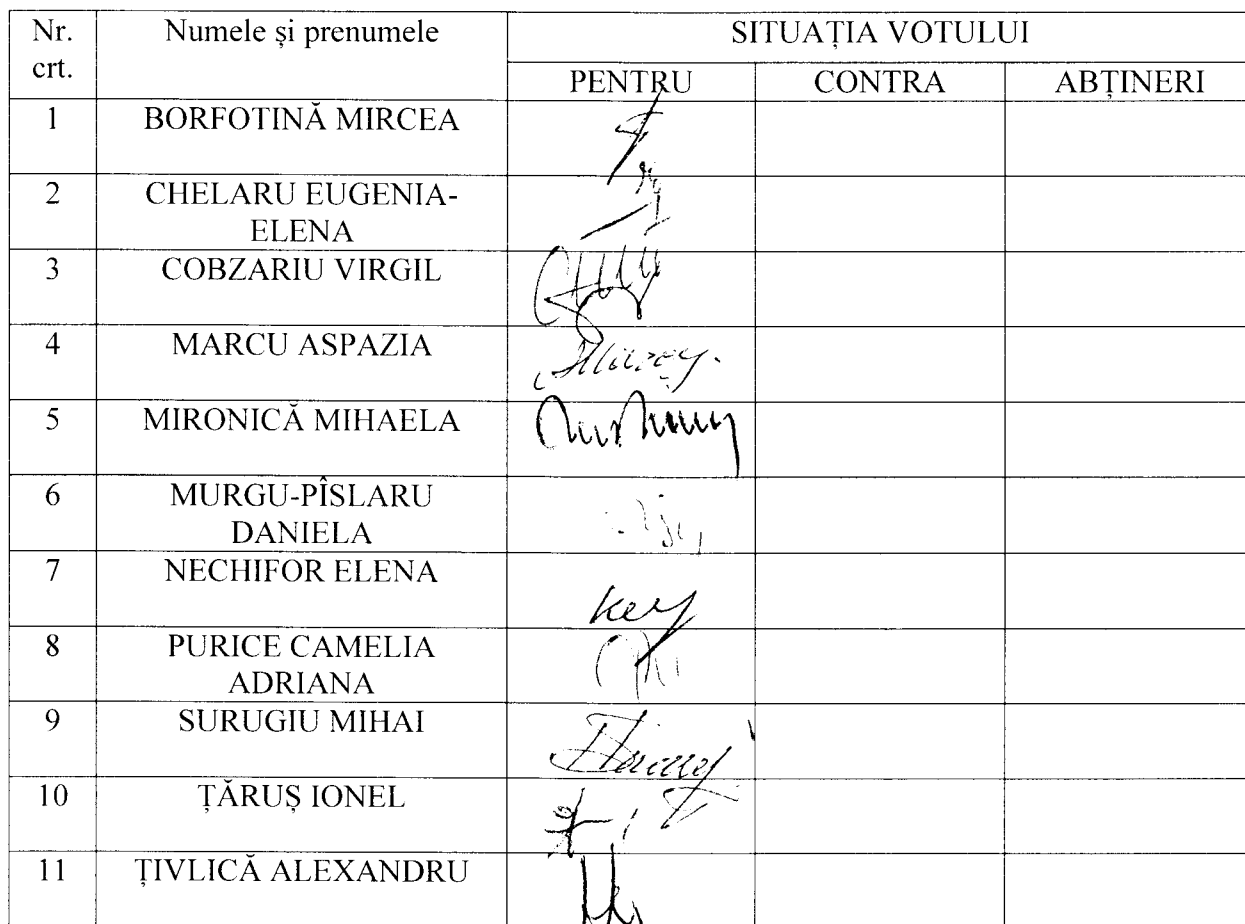 Nr. crt.
Numele și prenumele
SITUAȚIA VOTULUI
PENTRU
CONTRA
ABȚINERI
1
BORFOTINĂ MIRCEA
2
CHELARU EUGENIA-
ELENA
3
COBZARIU VIRGIL
4
MARCU ASPAZIA
5
MIRONICĂ MIHAELA
6
MURGU-PÎSLARU
DANIELA
7
NECHIFOR ELENA
8
PURICE CAMELIA
ADRIANA
9
SURUGIU MIHAI
10
ȚĂRUȘ IONEL
11
ȚIVLICĂ ALEXANDRU